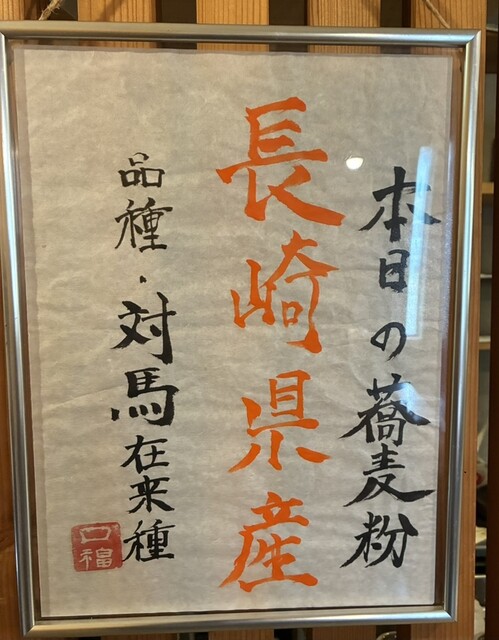 本日の蕎麦粉
長崎県産
品種・対馬在来種
口福